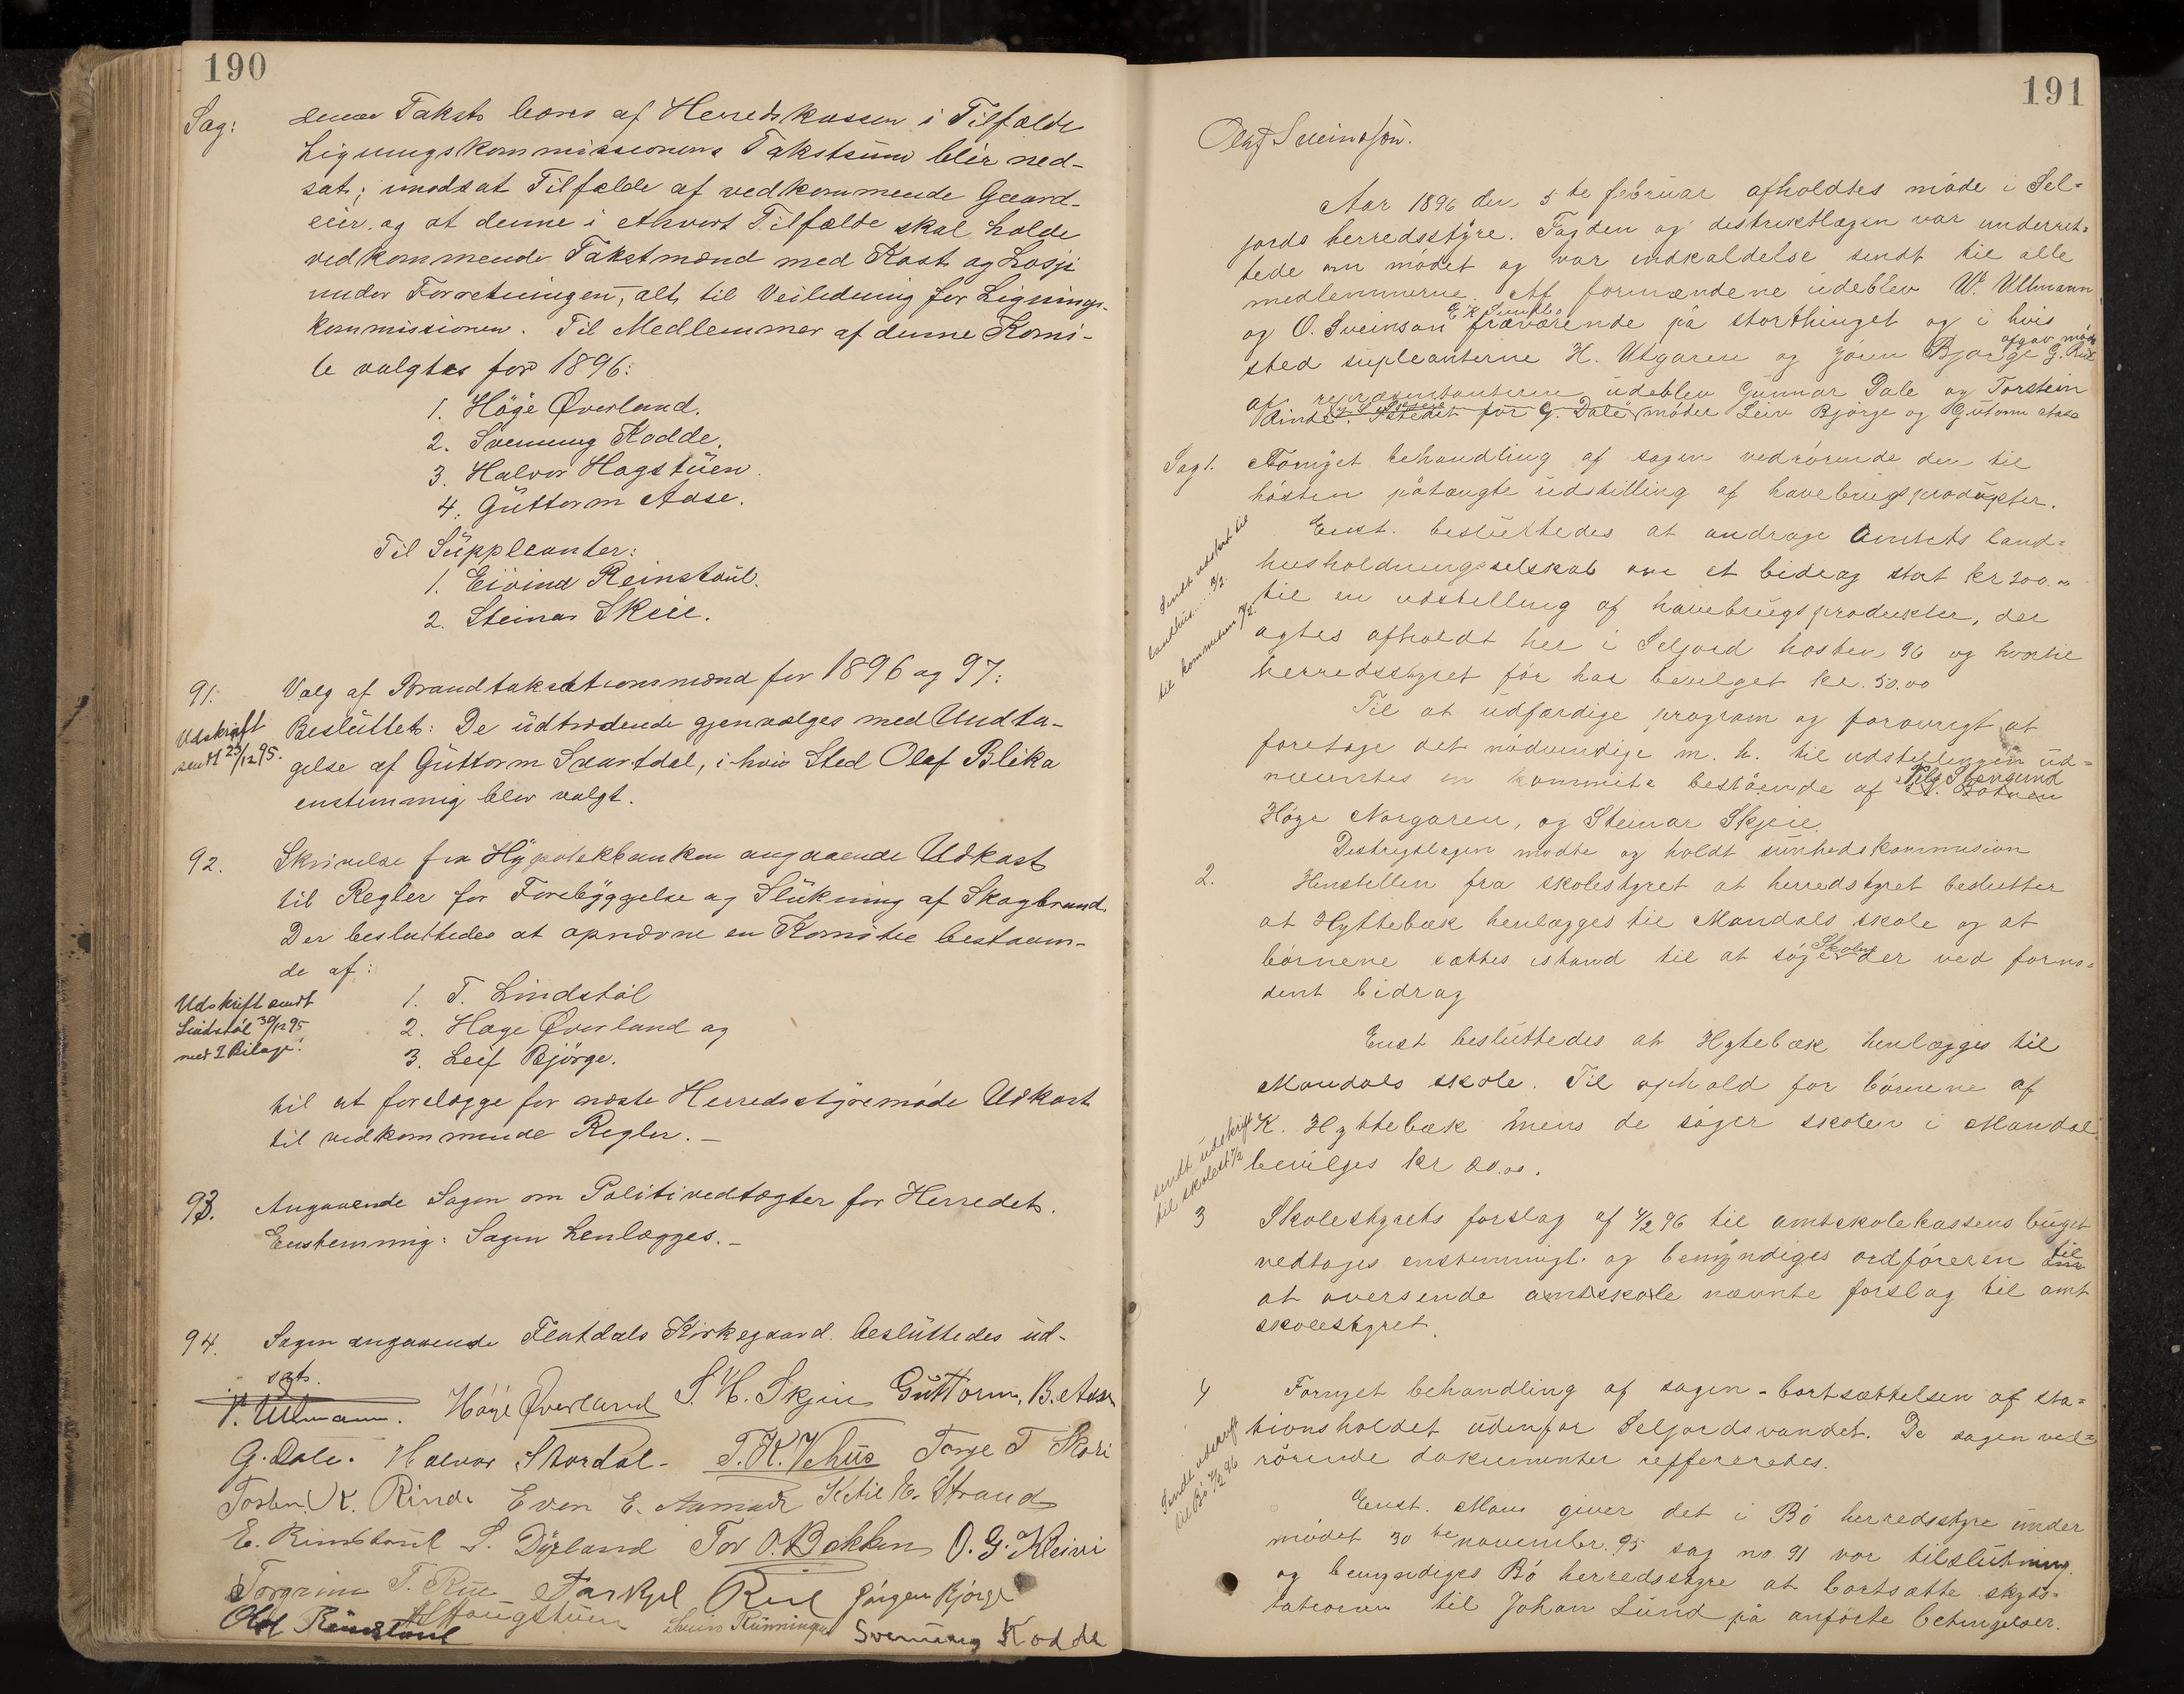 190
Sag: denne Takst bæres af Herredskassen i Tilfælde
Ligningskommissionens Takstsum blir ned-
sat; modsat Tilfælde af vedkommende Gaard-
eier, og at denne i ethvert Tilfælde skal holde
vedkommende Takstmænd med Kost og Losji
under Forretningen, alt til Veiledning for Lignings-
kommissionen. Til Medlemmer af denne Komi-
te valgtes for 1896:
1. Höge Øverland.
2. Svenung Kodde.
3. Halvor Hagstuen.
4. Guttorm Aase.
Til Suppleanter:
1. Eivind Reinstaul.
2. Steinar Skeie.
91. Valg af Brandtakstationsmænd for 1896 og 97:
Udskrift
sendt 23/12 95.
Besluttet: De udtrædende gjenvælges med Undta-
gelse af Guttorm Svartdal, i hvis Sted Olaf Blika
enstemmig blev valgt.
92. Skrivelse fra Hypotekbanken angaaende Udkast
til Regler for Forebyggelse og Slukning af Skogbrand
Der besluttedes at opnævne en Komite bestaaen-
de af:
Udskrift sendt
Lindstøl 30/12 95
med 2 Bilage.
1. T. Lindstöl
2. Høge Øverland og
3. Leif Bjørge.
til at forelægge for næste Herredsstyremöde Udkast
til vedkommende Regler. –
93. Angaaende Sagen om Politivedtægter for Herredet.
Enstemmig: Sagen henlægges. –
94. Sagen angaaende Flatdals Kirkegaard besluttedes ud-
sat.
V. Ullmann. Höge Øverland S. H. Skjeie Guttorm B. Aase
G. Dale. Halvor Stordal – T. K. Vehus Tarje T Skori
Torsten K. Rinde Even E. Aamodt Ketil K. Strand
E. Reinstaul S. Dyrland Tov O. Bekken O. G. Kleivi
Torgrim T. Rue Tarkjel Rui Jörgen Bjørge
Olaf Reinstaul H Haugstuen Svein Rünningen Svenung Kodde
191
Olaf Sveinsson.
Aar 1896 den 5te februar afholdtes möde i Sel-
jords herredsstyre. Fogden og distriktlægen var underret-
tede om mödet og var indkaldelse sendt til alle
medlemmerne. Af formændene udeblev V. Ullmann
og O. Sveinson fraværende på storthinget og i hvis
sted supleanterne H. Utgaren og Jörn Bjørge G. Rui
af repræsentanterne udeblev Gunnar Dale og Torstein
Rinde. Istedet for G. Dale möder Leiv Bjørge og Gutorm Aase
Sag 1. Fornyet behandling af sagen vedrörende den til
hösten påtængte udstilling af havebrugsprodukter.
Enst. besluttedes at andrage Amtets land-
husholdningsselskab om et bidrag stort kr 200.00
til en udstilling af havebrugsprodukter, der
agtes afholdt her i Seljord hösten 96 og hvortil
herredsstyret för har bevilget kr. 50.00
Til at udfærdige program og forövrigt at
foretage det nödvendige m. h. til udstillingen ud-
nævntes en kommite bestående af
Höge Norgaren, og Steinar Skjeie.
Distriktlægen mödte og holdt sunhedskommision
2. Henstillen fra skolestyret at herredstyret beslutter
at Hyttebæk henlægges til Mandals skole og at
börnene sættes istand til at söge Skolen der ved forno-
dent bidrag
Enst besluttedes at Hytebæk henlægges til
Mandals skole. Til ophold for börnene af
sendt udskrift
til skolest 7/2
K. Hyttebæk mens de söger skolen i Mandal
bevilges kr 20.00.
3 Skolestyrets forslag af 4/2 96 til amtskolekassens buget
vedtages enstemmigt. og bemyndiges ordföreren til
at oversende amtskole nævnte forslag til amt
skolestyret.
4 Fornyet behandling af sagen – bortsættelsen af sta-
tionsholdet udenfor Seljordsvandet. De sagen ved-
rörende dokumenter reffereredes.
Sendt udskrift
til Bö 7/2 96
Enst. Man giver det i Bö herredsstyre under
mödet 30te novembr. 95 sag no 91 vor tilslutning.
og bemyndiges Bö herredsstyre at bortsætte skyds-
tationen til Johan Lund på anförte betingelser.